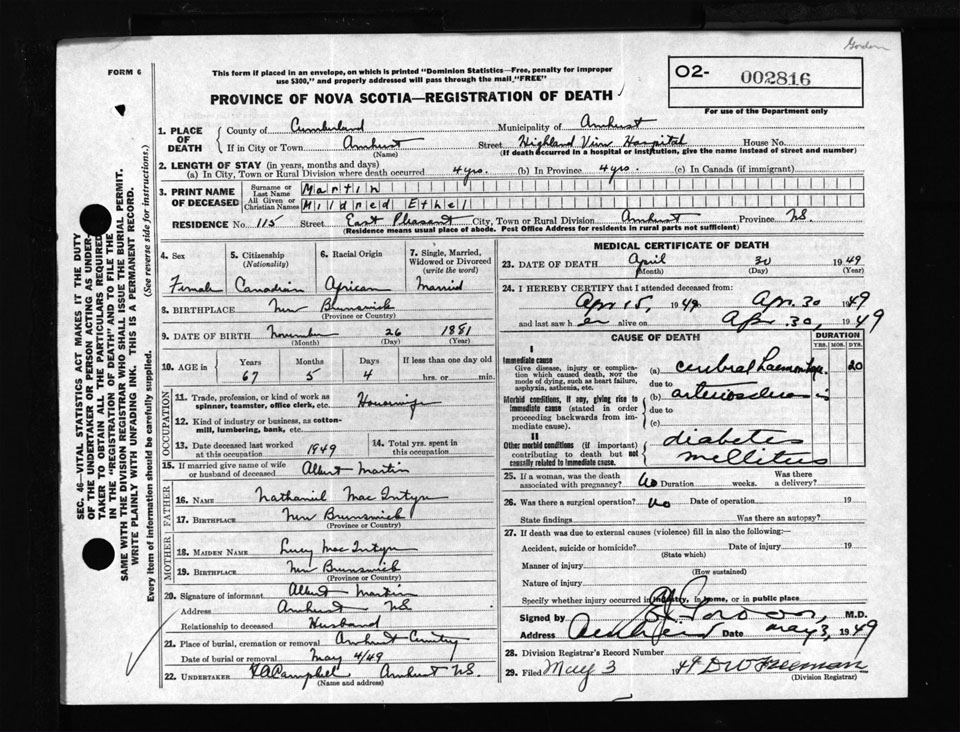 Gordon
FORM 6
This form if placed in an envelope, on which is printed "Dominion Statistics—Free, penalty for improper
use $300," and properly addressed will pass through the mail, "FREE"
O2- 002816
For use of the Department only
PROVINCE OF NOVA SCOTIA—REGISTRATION OF DEATH
1. PLACE OF DEATH
County of Cumberland Municipality of Amherst
If in City or Town Amherst Street Highland View Hospital House No.
(Name) (If death occurred in a hospital or institution, give the name instead of street and number)
2. LENGTH OF STAY (in years, months and days)
(a) In City, Town or Rural Division where death occurred 4 yrs. (b) In Province 4 yrs. (c) In Canada (if immigrant)
3. PRINT NAME OF DECEASED
Surname or Last Name Martin
All Given or Christian Names Mildred Ethel
RESIDENCE No. 115 Street East Pleasant City, Town or Rural Division Amherst Province N.S.
(Residence means usual place of abode. Post Office Address for residents in rural parts not sufficient)
4. Sex
Female
5. Citizenship (Nationality)
Canadian
6. Racial Origin
African
7. Single, Married, Widowed or Divorced (write the word)
Married
8. BIRTHPLACE New Brunswick
(Province or Country)
9. DATE OF BIRTH November 26 1881
(Month) (Day) (Year)
10. AGE in
Years Months Days If less than one day old
67 5 4 hrs. or min.
OCCUPATION
11. Trade, profession, or kind of work as spinner, teamster, office clerk, etc. Housewife
12. Kind of industry or business, as cotton-mill, lumbering, bank, etc.
13. Date deceased last worked at this occupation 1949
14. Total yrs. spent in this occupation
15. If married give name of wife or husband of deceased Albert Martin
FATHER
16. NAME Nathaniel MacIntyre
17. BIRTHPLACE New Brunswick
(Province or Country)
MOTHER
18. MAIDEN NAME Lucy MacIntyre
19. BIRTHPLACE New Brunswick
(Province or Country)
20. Signature of informant Albert Martin
Address Amherst NS
Relationship to deceased Husband
21. Place of burial, cremation or removal Amherst Cemetery
Date of burial or removal May 4/49
22. UNDERTAKER Campbell Amherst NS.
(Name and address)
MEDICAL CERTIFICATE OF DEATH
23. DATE OF DEATH April 30 1949
(Month) (Day) (Year)
24. I HEREBY CERTIFY that I attended deceased from:
Apr. 15, 1949 to Apr. 30 1949
and last saw her alive on Apr. 30, 1949
CAUSE OF DEATH
DURATION
YRS. MOS. DYS.
I
Immediate cause
Give disease, injury or complication which caused death, NOT the mode of dying, such as heart failure, asphyxia, asthenia, etc.
(a) cerebral haemorrhage 20
due to
Morbid conditions, if any, giving rise to immediate cause (stated in order proceeding backwards from immediate cause).
(b) arteriosclerosis
due to
(c)
II
Other morbid conditions (if important) contributing to death but not causally related to immediate cause.
diabetes
mellitus
25. If a woman, was the death associated with pregnancy? No Duration weeks. Was there a delivery?
26. Was there a surgical operation? No Date of operation 19
State findings Was there an autopsy?
27. If death was due to external causes (violence) fill in also the following:—
Accident, suicide or homicide? Date of injury 19
(State which)
Manner of injury
(How sustained)
Nature of injury
Specify whether injury occurred in industry, in home, or in public place
Signed by Gordon, M.D.
Address Date May 3, 1949
28. Division Registrar's Record Number
29. Filed May 3 1949 Freeman
(Division Registrar)
SEC. 46—VITAL STATISTICS ACT MAKES IT THE DUTY
OF THE UNDERTAKER OR PERSON ACTING AS UNDER-
TAKER TO OBTAIN ALL THE PARTICULARS REQUIRED
IN THE "REGISTRATION OF DEATH" AND TO FILE THE
SAME WITH THE DIVISION REGISTRAR WHO SHALL ISSUE THE BURIAL PERMIT.
WRITE PLAINLY WITH UNFADING INK. THIS IS A PERMANENT RECORD.
Every item of information should be carefully supplied. (See reverse side for instructions.)